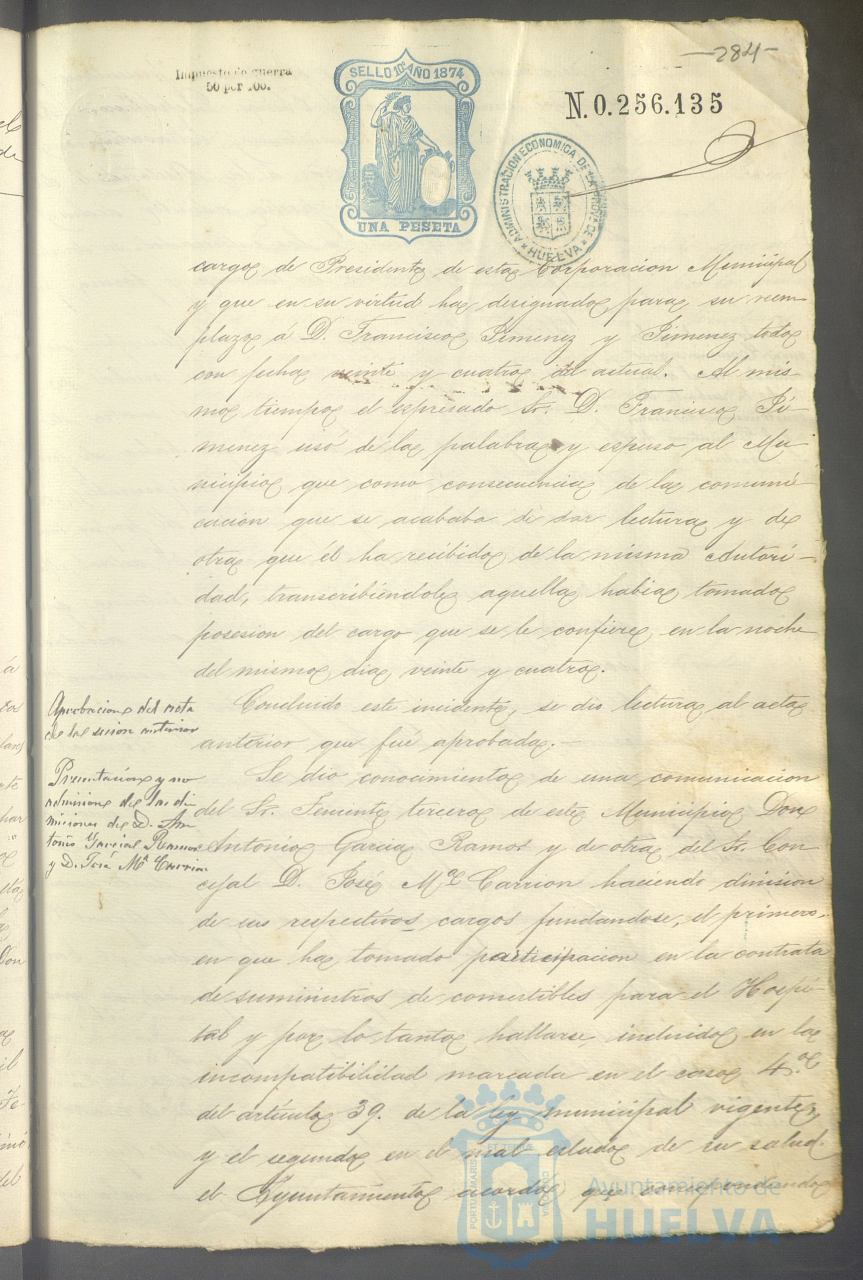 —284—
Impuesto de guerra
50 por 100.
SELLO 10º AÑO 1874
UNA PESETA
N. 0.256.135
ADMINISTRACION ECONOMICA DE LA PROV.ª DE
HUELVA
cargo de Presidente de esta Corporacion Municipal
y que en su virtud ha designado para su reem-
plazo á D. Francisco Jimenez y Jimenez todo
con fecha veinte y cuatro del actual. Al mis-
mo tiempo el espresado Sr. D. Francisco Ji-
menez usó de la palabra y espuso al Mu-
nicipio que como consecuencia de la comuni-
cacion que se acababa de dar lectura y de
otra que él ha recibido de la misma Autori-
dad, transcribiéndole aquella habia tomado
posesion del cargo que se le confiere en la noche
del mismo dia veinte y cuatro.
Aprobacion del acta
de la sesion anterior
Concluido este incidente, se dio lectura al acta
anterior que fué aprobada.—
Presentacion y no
admision de las di-
misiones de D. An-
tonio Garcia Ramos
y D. José Mª Carrion
Se dio conocimiento de una comunicacion
del Sr. Teniente tercero de este Municipio Don
Antonio Garcia Ramos y de otra del Sr. Con-
cejal D. José Mª Carrion haciendo dimision
de sus respectivos cargos fundandose, el primero,
en que ha tomado participacion en la contrata
de suministros de comestibles para el Hospi-
tal y por lo tanto hallarse incluido en la
incompatibilidad marcada en el caso 4.º
del artículo 39. de la ley municipal vigente,
y el segundo en el mal estado de su salud.
el Ayuntamiento acordó que correspondiendo
Ayuntamiento de
HUELVA